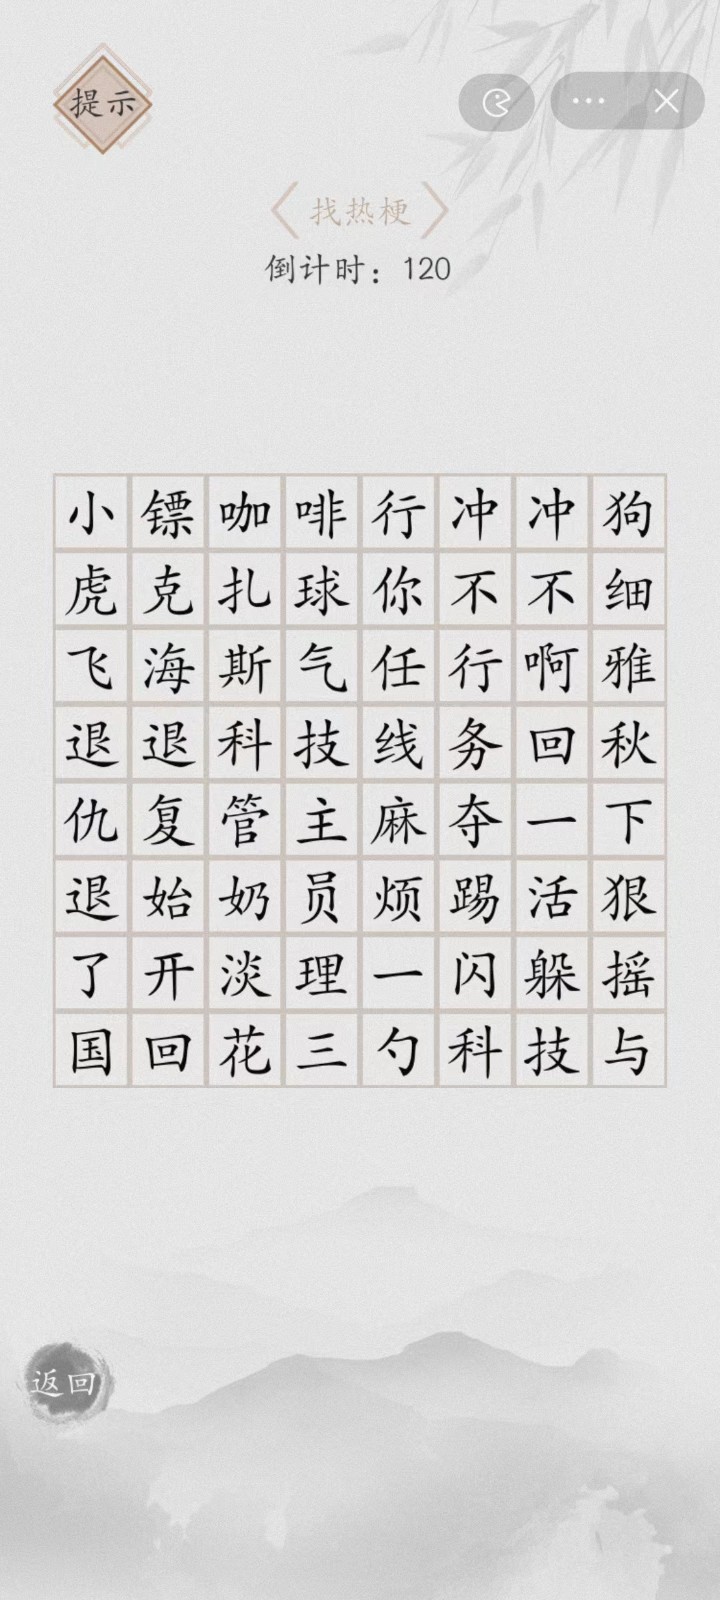 提示
找热梗
倒计时：120
小镖咖啡行冲冲狗
虎克扎球你不不细
飞海斯气任行啊雅
退退科技线务回秋
仇复管主麻夺一下
退始奶员烦踢活狠
了开淡理一闪躲摇
国回花三勺科技与
返回